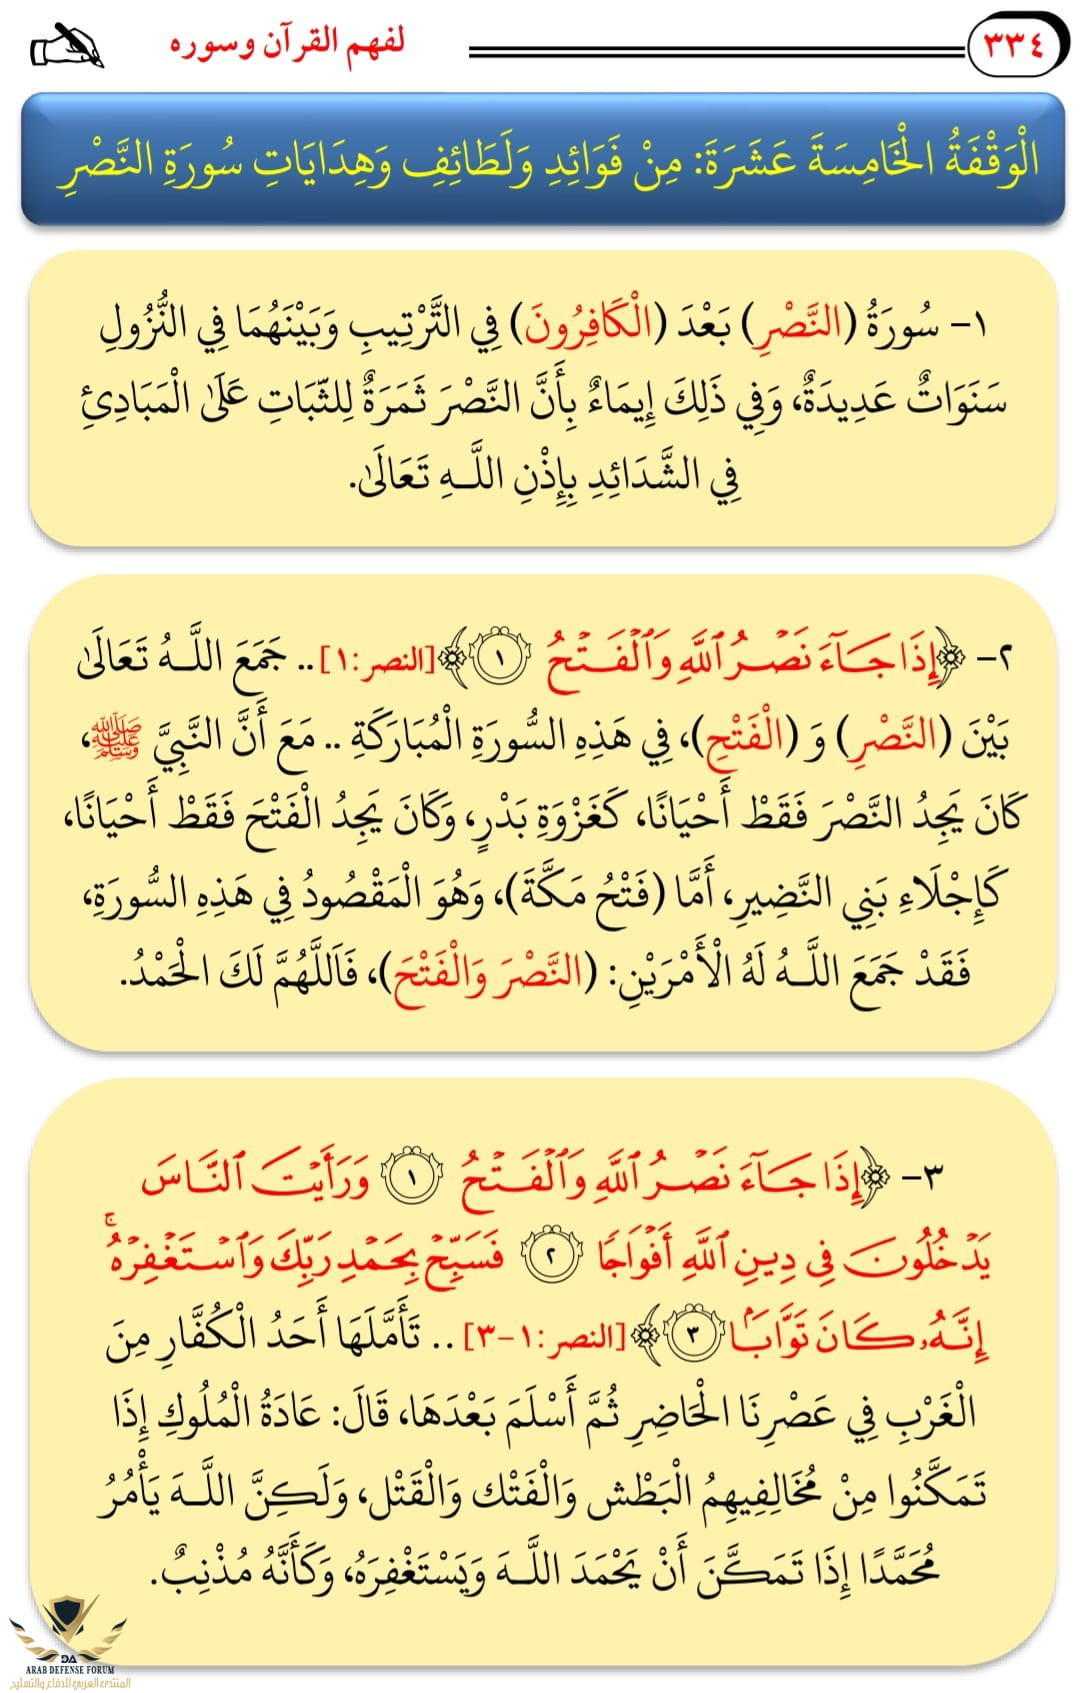 ٣٣٤
لفهم القرآن وسوره
الْوَقْفَةُ الْخَامِسَةَ عَشَرَةَ: مِنْ فَوَائِدِ وَلَطَائِفِ وَهِدَايَاتِ سُورَةِ النَّصْرِ
١- سُورَةُ (النَّصْرِ) بَعْدَ (الْكَافِرُونَ) فِي التَّرْتِيبِ وَبَيْنَهُمَا فِي النُّزُولِ
سَنَوَاتٌ عَدِيدَةٌ، وَفِي ذَلِكَ إِيمَاءٌ بِأَنَّ النَّصْرَ ثَمَرَةٌ لِلثَّبَاتِ عَلَى الْمَبَادِئِ
فِي الشَّدَائِدِ بِإِذْنِ اللَّـهِ تَعَالَى.
٢- ﴿إِذَا جَآءَ نَصْرُ ٱللَّهِ وَٱلْفَتْحُ ١﴾ [النصر:١].. جَمَعَ اللَّـهُ تَعَالَى
بَيْنَ (النَّصْرِ) وَ (الْفَتْحِ)، فِي هَذِهِ السُّورَةِ الْمُبَارَكَةِ .. مَعَ أَنَّ النَّبِيَّ ﷺ،
كَانَ يَجِدُ النَّصْرَ فَقَطْ أَحْيَانًا، كَغَزْوَةِ بَدْرٍ، وَكَانَ يَجِدُ الْفَتْحَ فَقَطْ أَحْيَانًا،
كَإِجْلَاءِ بَنِي النَّضِيرِ، أَمَّا (فَتْحُ مَكَّةَ)، وَهُوَ الْمَقْصُودُ فِي هَذِهِ السُّورَةِ،
فَقَدْ جَمَعَ اللَّـهُ لَهُ الْأَمْرَيْنِ: (النَّصْرَ وَالْفَتْحَ)، فَاَللَّهُمَّ لَكَ الْحَمْدُ.
٣- ﴿إِذَا جَآءَ نَصْرُ ٱللَّهِ وَٱلْفَتْحُ ١ وَرَأَيْتَ ٱلنَّاسَ
يَدْخُلُونَ فِي دِينِ ٱللَّهِ أَفْوَاجًا ٢ فَسَبِّحْ بِحَمْدِ رَبِّكَ وَٱسْتَغْفِرْهُۚ
إِنَّهُۥ كَانَ تَوَّابًۢا ٣﴾ [النصر:١-٣] .. تَأَمَّلَهَا أَحَدُ الْكُفَّارِ مِنَ
الْغَرْبِ فِي عَصْرِنَا الْحَاضِرِ ثُمَّ أَسْلَمَ بَعْدَهَا، قَالَ: عَادَةُ الْمُلُوكِ إِذَا
تَمَكَّنُوا مِنْ مُخَالِفِيهِمُ الْبَطْش وَالْفَتْك وَالْقَتْل، وَلَكِنَّ اللَّـهَ يَأْمُرُ
مُحَمَّدًا إِذَا تَمَكَّنَ أَنْ يَحْمَدَ اللَّـهَ وَيَسْتَغْفِرَهُ، وَكَأَنَّهُ مُذْنِبٌ.
DA
ARAB DEFENSE FORUM
المنتدى العربي للدفاع والتسليح